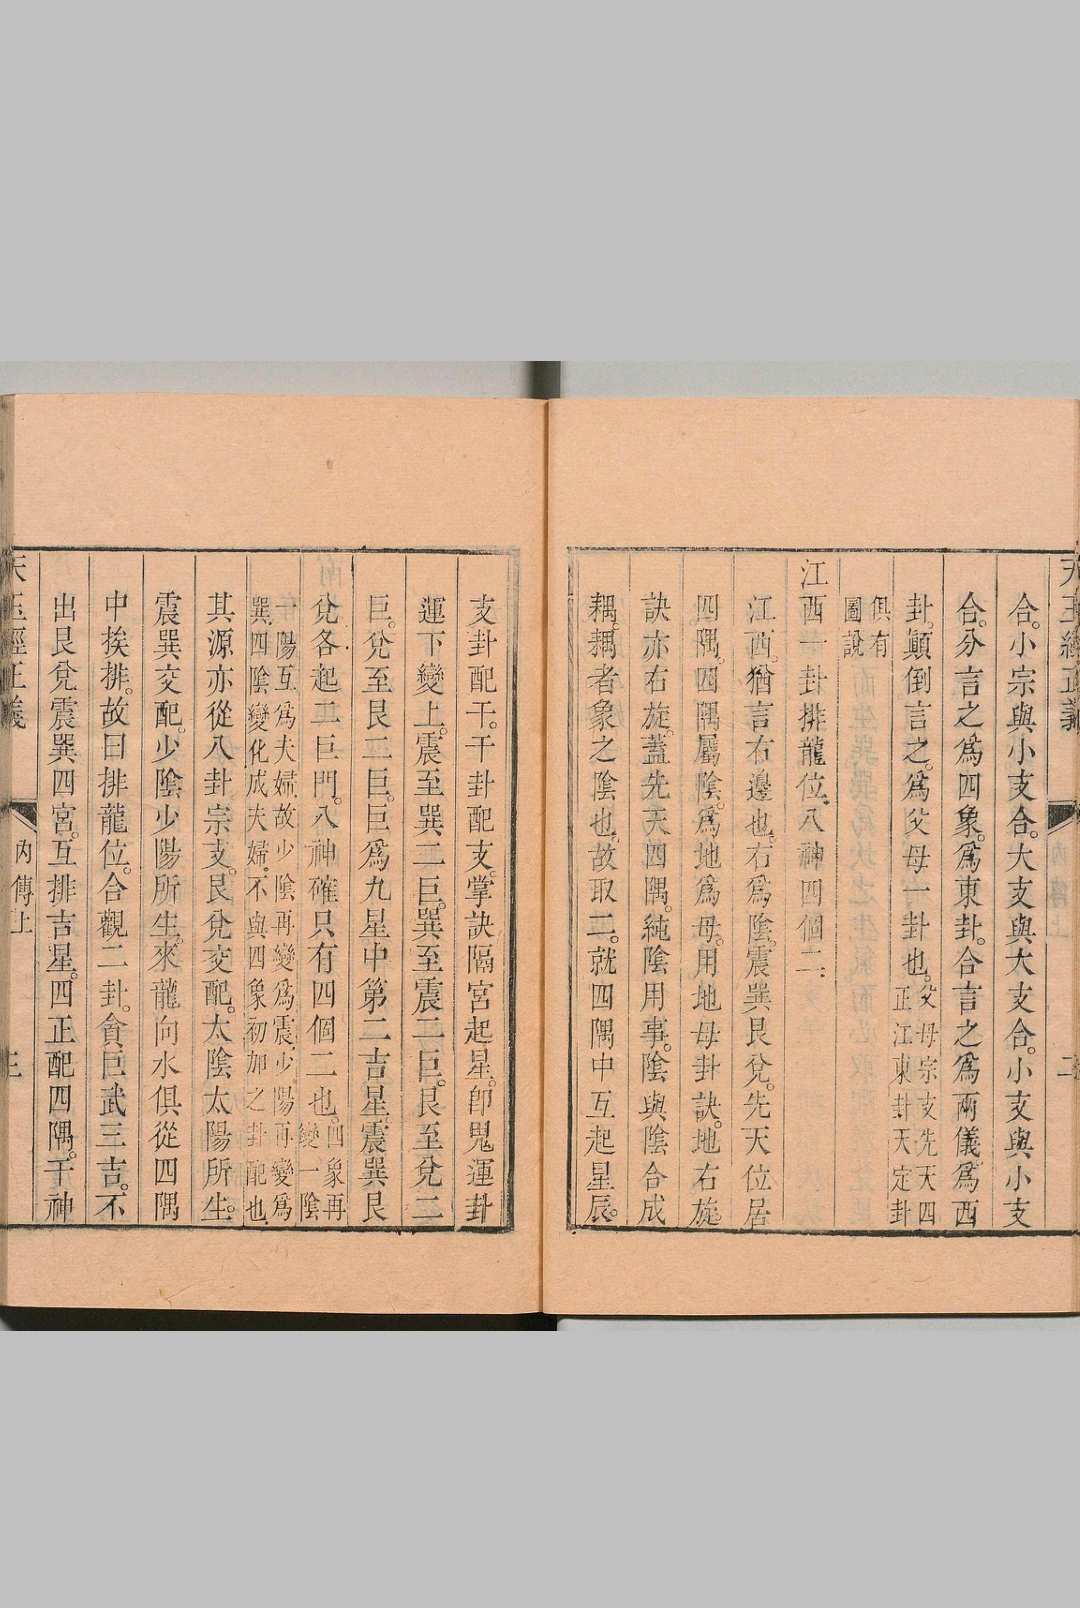 天玉經正義
內傳上
二
合。小宗與小支合。大支與大支合。小支與小支
合。分言之爲四象。爲東卦。合言之爲兩儀爲西
卦。顛倒言之。爲父母一卦也。父母宗支先天四
正江東卦天定卦
俱有
圖說
江西一卦排龍位。八神四個二。
江西。猶言右邊也。右爲陰。震巽艮兌。先天位居
四隅。四隅屬陰。爲地爲母。用地母卦訣。地右旋。
訣亦右旋。蓋先天四隅。純陰用事。陰與陰合成
耦。耦者象之陰也。故取二。就四隅中互起星辰。
支卦配干。干卦配支。掌訣隔宮起星。卽鬼運卦
運下變上。震至巽二巨。巽至震二巨。艮至兌二
巨。兌至艮二巨。巨爲九星中第二吉星。震巽艮
兌各起二巨門。八神確只有四個二也。四象再
變一陰
一陽互爲夫婦。故少陰再變爲震。少陽再變爲
巽。四陰變化成夫婦。不與四象初加之卦配也。
其源亦從八卦宗支。艮兌交配。太陰太陽所生。
震巽交配。少陰少陽所生。來龍向水俱從四隅
中挨排。故曰排龍位。合觀二卦。貪巨武三吉。不
出艮兌震巽四宮。互排吉星。四正配四隅。干神
天玉經正義
內傳上
三